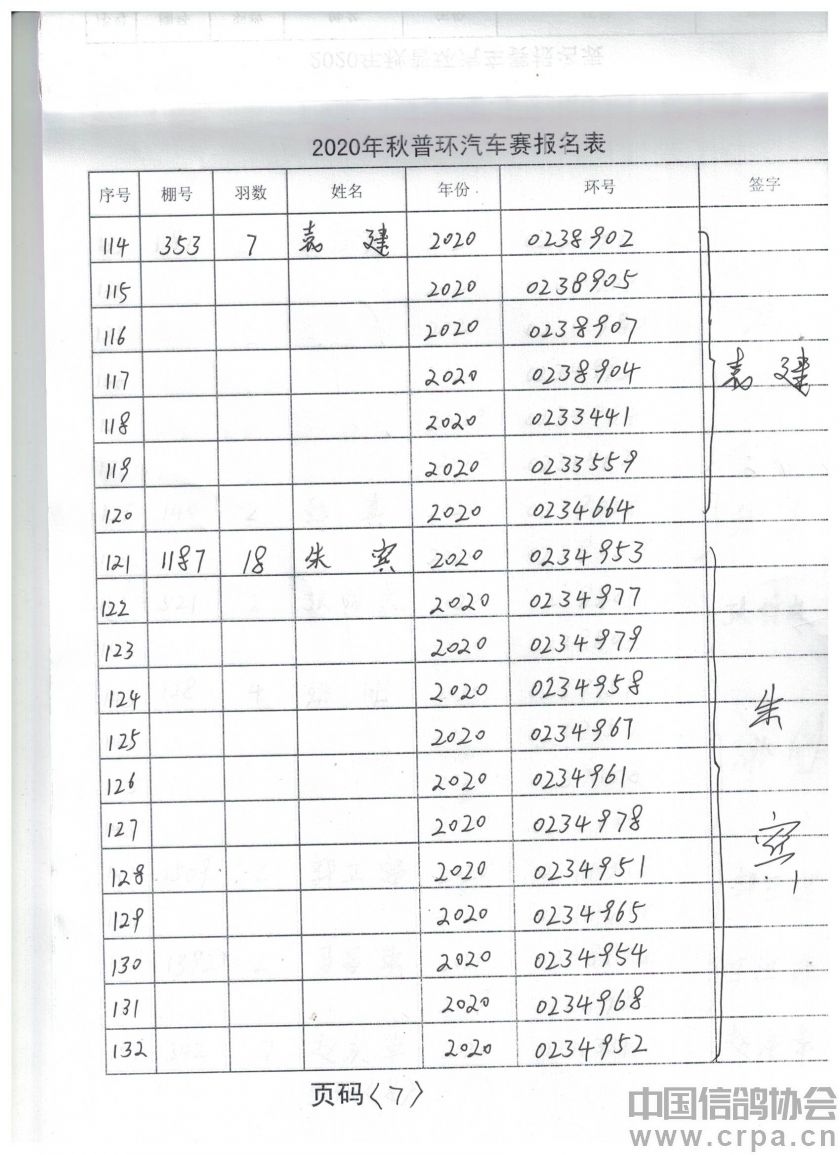 2020年秋普环汽车赛报名表
序号 棚号 羽数 姓名 年份 环号 签字
114 353 7 袁建 2020 0238902
115 2020 0238905
116 2020 0238907
117 2020 0238904 袁建
118 2020 0233441
119 2020 0233559
120 2020 0234664
121 1187 18 朱宾 2020 0234953
122 2020 0234977
123 2020 0234979
124 2020 0234958 朱
125 2020 0234967
126 2020 0234961
127 2020 0234978 宾
128 2020 0234951
129 2020 0234965
130 2020 0234954
131 2020 0234968
132 2020 0234952
页码〈7〉
中国信鸽协会
www.crpa.cn